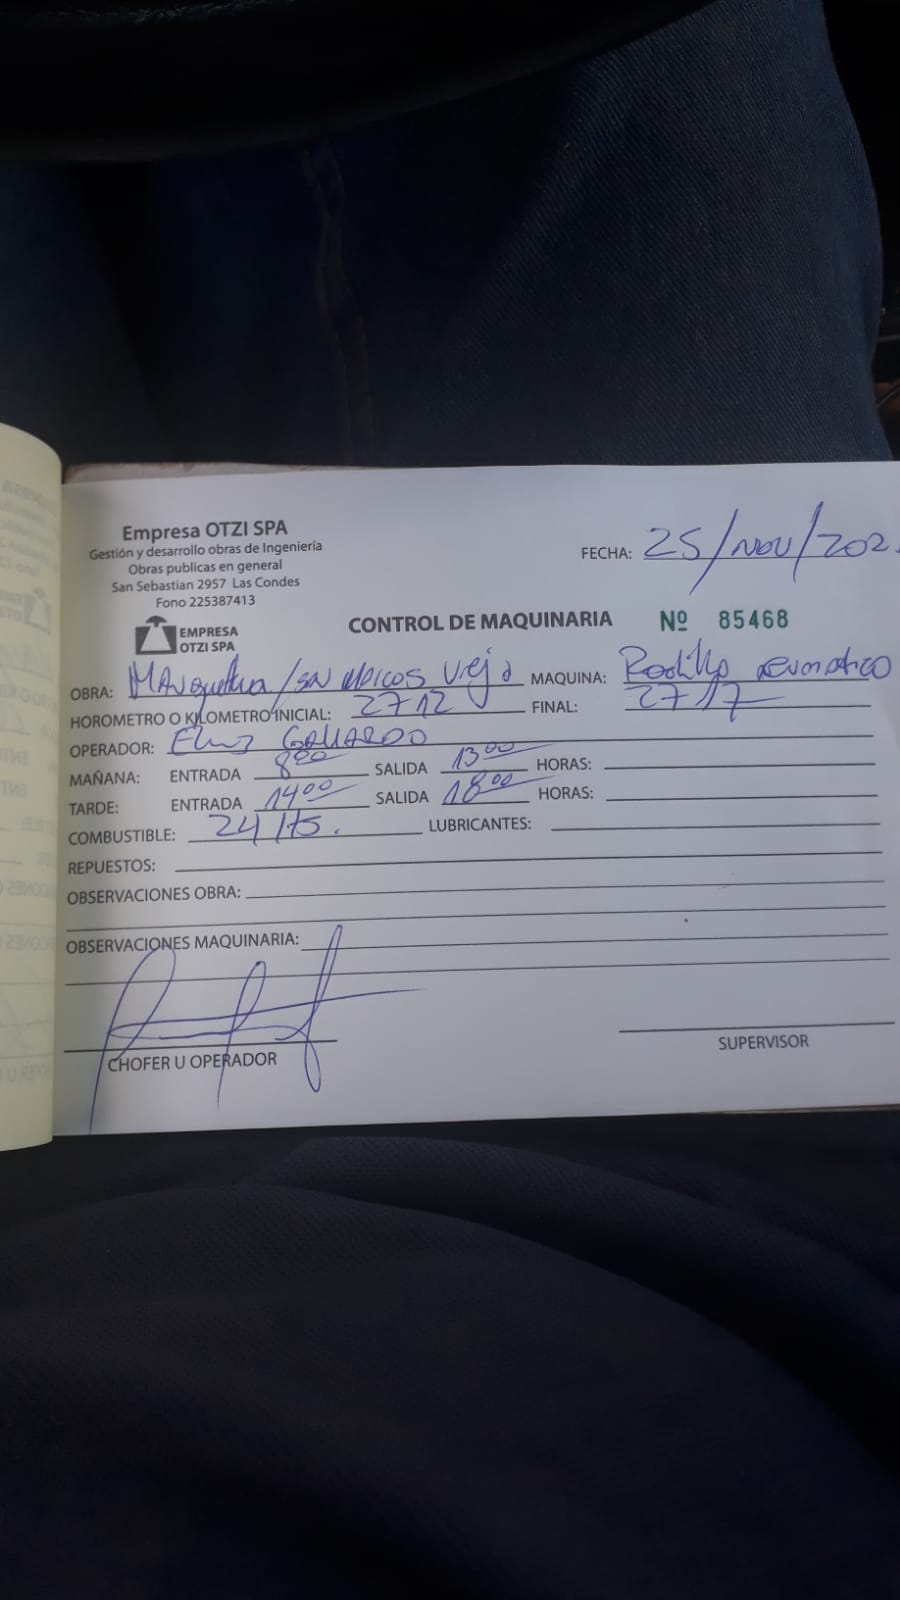 Empresa OTZI SPA
Gestión y desarrollo obras de Ingeniería
Obras publicas en general
San Sebastian 2957 Las Condes
Fono 225387413
EMPRESA
OTZI SPA
FECHA: 25/NOV/202
CONTROL DE MAQUINARIA Nº 85468
OBRA: MARquetha/ Vieja MAQUINA: Rodillo neumatico
HOROMETRO O KILOMETRO INICIAL: 2712 FINAL: 2717
OPERADOR: GALLARDO
MAÑANA: ENTRADA 8:00 SALIDA 13:00 HORAS:
TARDE: ENTRADA 14:00 SALIDA 18:00 HORAS:
COMBUSTIBLE: 24 lts. LUBRICANTES:
REPUESTOS:
OBSERVACIONES OBRA:
OBSERVACIONES MAQUINARIA:
CHOFER U OPERADOR
SUPERVISOR